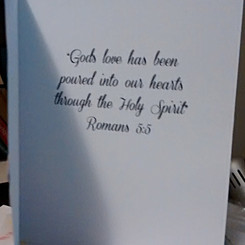 "Gods love has been
poured into our hearts
through the Holy Spirit"
Romans 5:5